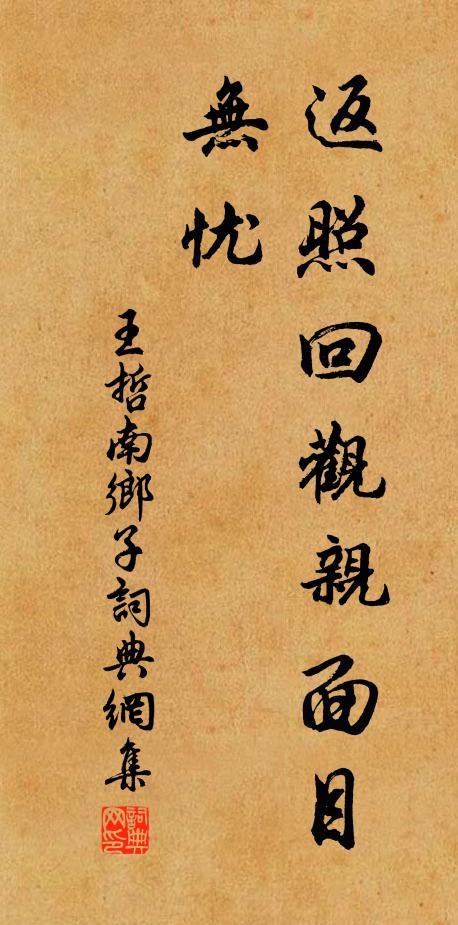 返照回觀親面目
無忧
王哲南鄉子詞典網集
詞典网印